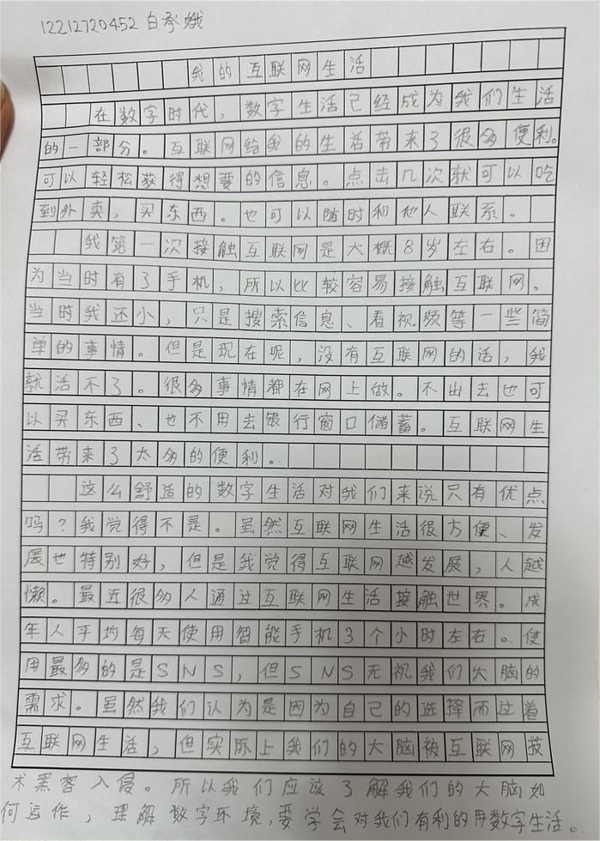 12212720452白承娥
我的互联网生活
在数字时代，数字生活已经成为我们生活
的一部分。互联网给我的生活带来了很多便利。
可以轻松获得想要的信息。点击几次就可以吃
到外卖，买东西。也可以随时和他人联系。
我第一次接触互联网是大概8岁左右。因
为当时有了手机，所以比较容易接触互联网。
当时我还小，只是搜索信息、看视频等一些简
单的事情。但是现在呢，没有互联网的话，我
就活不了。很多事情都在网上做。不出去也可
以买东西、也不用去银行窗口储蓄。互联网生
活带来了太多的便利。
这么舒适的数字生活对我们来说只有优点
吗？我觉得不是。虽然互联网生活很方便、发
展也特别好，但是我觉得互联网越发展，人越
懒。最近很多人通过互联网生活接触世界。成
年人平均每天使用智能手机3个小时左右。使
用最多的是SNS，但SNS无视我们大脑的
需求。虽然我们认为是因为自己的选择而过着
互联网生活，但实际上我们的大脑被互联网技
术黑客入侵。所以我们应该了解我们的大脑如
何运作，理解数字环境，要学会对我们有利的用数字生活。